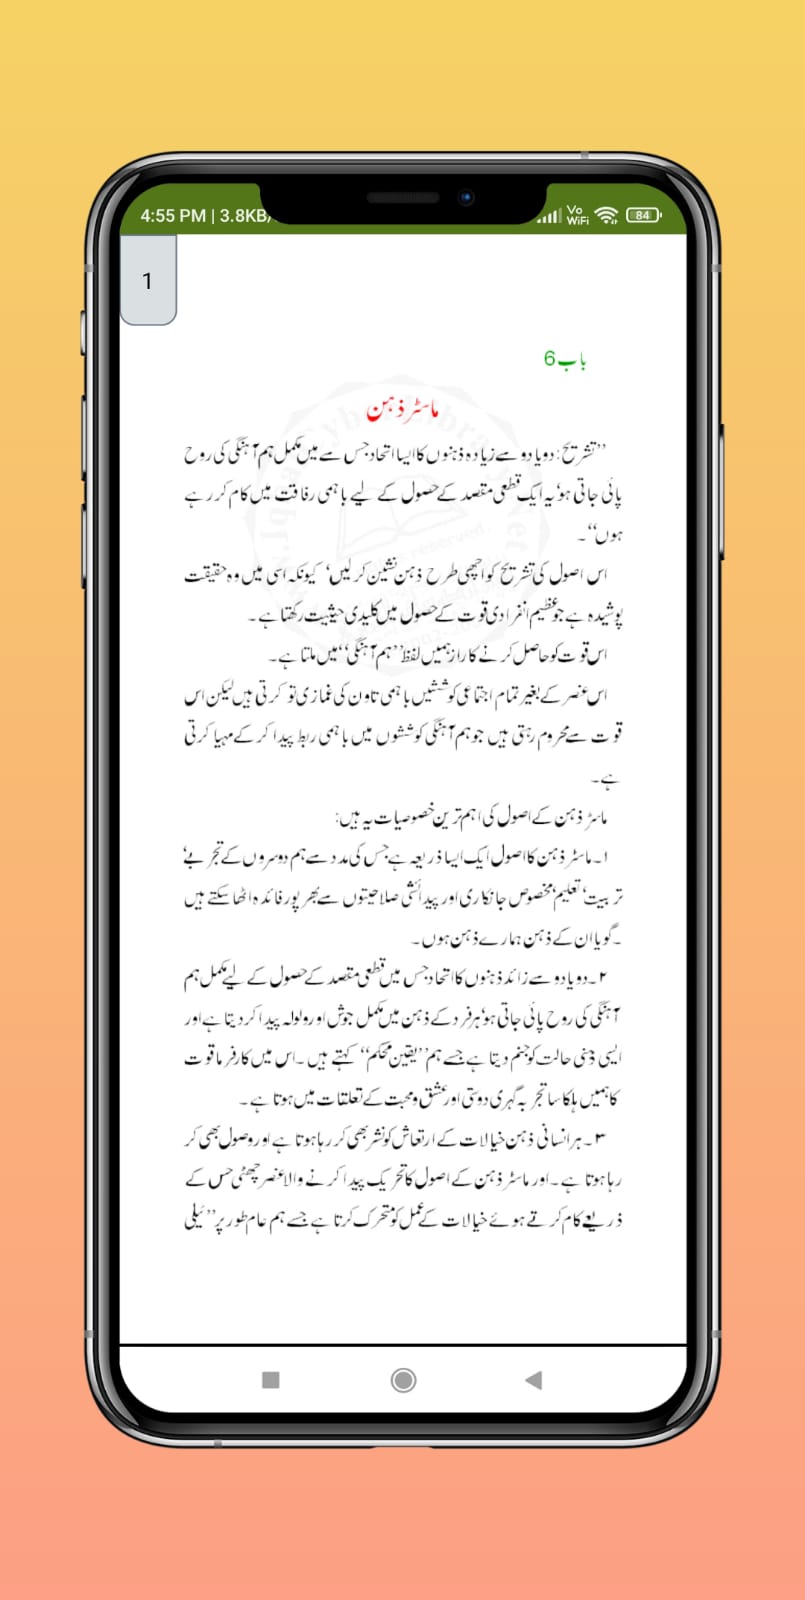 4:55 PM | 3.8KB/
Vo
WiFi
84
1
باب 6
ماسٹر ذہن
”تشریح: دو یا دو سے زیادہ ذہنوں کا ایسا اتحاد جس سے میں مکمل ہم آہنگی کی روح
پائی جاتی ہو‘ یہ ایک قطعی مقصد کے حصول کے لیے باہمی رفاقت میں کام کر رہے
ہوں“۔
اس اصول کی تشریح کو اچھی طرح ذہن نشین کر لیں‘ کیونکہ اسی میں وہ حقیقت
پوشیدہ ہے جو عظیم انفرادی قوت کے حصول میں کلیدی حیثیت رکھتا ہے۔
اس قوت کو حاصل کرنے کا راز ہمیں لفظ ”ہم آہنگی“ میں ملتا ہے۔
اس عنصر کے بغیر تمام اجتماعی کوششیں باہمی تاون کی غمازی تو کرتی ہیں لیکن اس
قوت سے محروم رہتی ہیں جو ہم آہنگی کوششوں میں باہمی ربط پیدا کر کے مہیا کرتی
ہے۔
ماسٹر ذہن کے اصول کی اہم ترین خصوصیات یہ ہیں:
۱۔ ماسٹر ذہن کا اصول ایک ایسا ذریعہ ہے جس کی مدد سے ہم دوسروں کے تجربے‘
تربیت‘ تعلیم‘ مخصوص جانکاری اور پیدائشی صلاحیتوں سے بھرپور فائدہ اٹھا سکتے ہیں
۔ گویا ان کے ذہن ہمارے ذہن ہوں۔
۲۔ دو یا دو سے زائد ذہنوں کا اتحاد جس میں قطعی مقصد کے حصول کے لیے مکمل ہم
آہنگی کی روح پائی جاتی ہو‘ ہر فرد کے ذہن میں مکمل جوش اور ولولہ پیدا کر دیتا ہے اور
ایسی ذہنی حالت کو جنم دیتا ہے جسے ہم ”یقین محکم“ کہتے ہیں۔ اس میں کارفرما قوت
کا ہمیں ہلکا سا تجربہ گہری دوستی اور عشق و محبت کے تعلقات میں ہوتا ہے۔
۳۔ ہر انسانی ذہن خیالات کے ارتعاش کو نشر بھی کر رہا ہوتا ہے اور وصول بھی کر
رہا ہوتا ہے۔ اور ماسٹر ذہن کے اصول کا تحریک پیدا کرنے والا عنصر چھٹی حس کے
ذریعے کام کرتے ہوئے خیالات کے عمل کو متحرک کرتا ہے جسے ہم عام طور پر ”ٹیلی